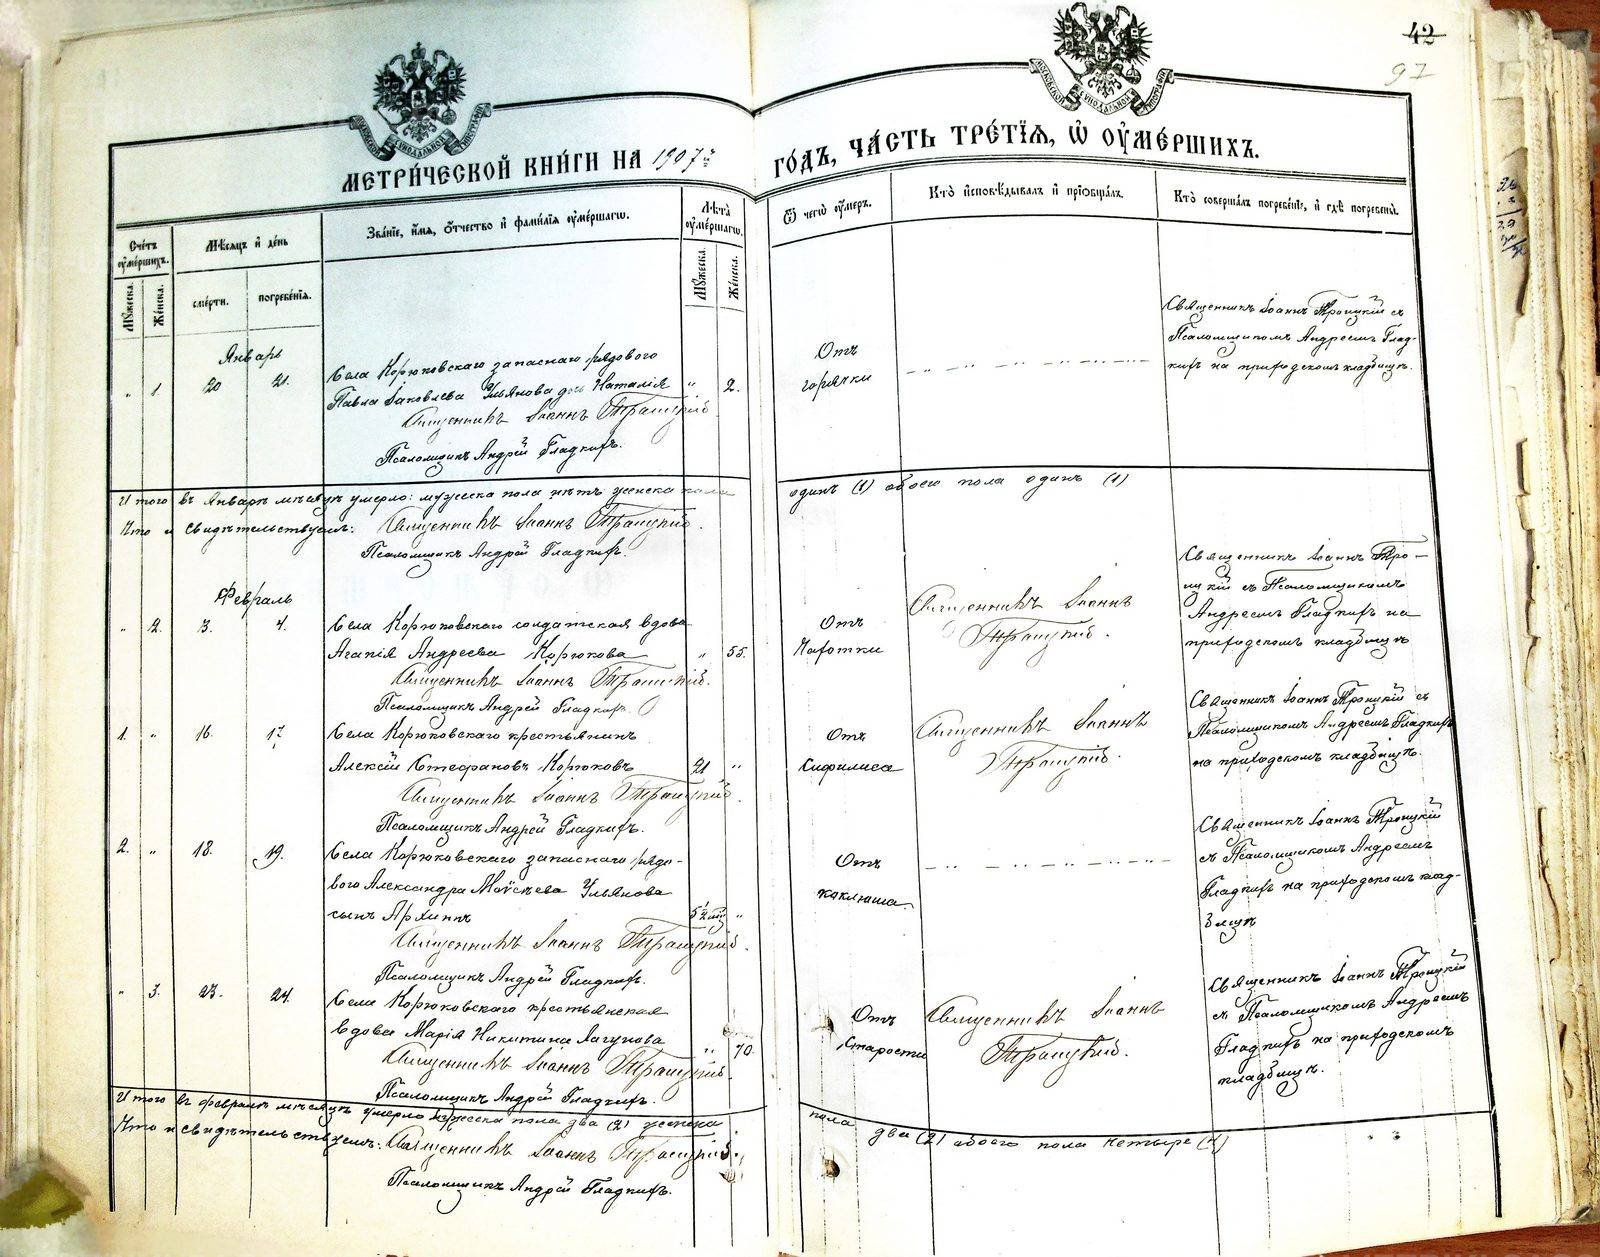 42
97
МЕТРИ́ЧЕСКОЙ КНИ́ГИ НА 1907й
ГО́ДЪ, ЧА́СТЬ ТРЕ́ТІѦ, Ѽ ОУ҆МЕ́РШИХЪ.
Сче́тъ оу҆ме́ршихъ.
Мѣ́сѧцъ и҆ де́нь
Зва́нїе, и҆́мѧ, ѻ҆́тчество и҆ фами́лїѧ оу҆ме́ршагѡ.
Лѣ́та оу҆ме́ршагѡ.
Ѿ чегѡ̀ оу҆́меръ.
Кто̀ и҆сповѣ́дывалъ и҆ прїѡбща́лъ.
Кто̀ соверша́лъ погребе́нїе, и҆ гдѣ̀ погребены̀.
Мꙋ́жеска.
Же́нска.
сме́рти.
погребе́нїѧ.
Мꙋ́жеска.
Же́нска.
Январь
" 1 20 21.
Села Корюковскаго запаснаго рядового
Павла Іаковлева Ульянова дочь Наталія " 2.
Священникъ Іоаннъ Троицкій.
Псаломщикъ Андрей Гладкихъ.
Отъ
горячки
Священникъ Іоаннъ Троицкій съ
Псаломщикомъ Андреемъ Глад-
кихъ на приходскомъ кладбищѣ.
Итого въ Январѣ мѣсяцѣ умерло: мужеска пола нѣтъ женска пола
одинъ (1) обоего пола одинъ (1)
Что и свидѣтельствуемъ: Священникъ Іоаннъ Троицкій.
Псаломщикъ Андрей Гладкихъ.
Февраль
" 2. 3. 4.
Села Корюковскаго солдатская вдова
Агапія Андреева Корюкова " 55.
Священникъ Іоаннъ Троицкій.
Псаломщикъ Андрей Гладкихъ.
Отъ
Чахотки
Священникъ Іоаннъ
Троицкій.
Священникъ Іоаннъ Тро-
ицкій съ Псаломщикомъ
Андреемъ Гладкихъ на
приходскомъ кладбищѣ
1. " 16. 17.
Села Корюковскаго крестьянинъ
Алексій Стефановъ Корюковъ 21 "
Священникъ Іоаннъ Троицкій.
Псаломщикъ Андрей Гладкихъ.
Отъ
Сифилиса
Священникъ Іоаннъ
Троицкій.
Священникъ Іоаннъ Троицкій съ
Псаломщикомъ Андреемъ Гладкихъ
на приходскомъ кладбищѣ.
2. " 18. 19.
Села Корюковскаго запаснаго рядо-
вого Александра Моѵсеева Ульянова
сынъ Архиппъ "
Священникъ Іоаннъ Троицкій.
Псаломщикъ Андрей Гладкихъ.
Отъ
коклюша.
Священникъ Іоаннъ Троицкій
съ Псаломщикомъ Андреемъ
Гладкихъ на приходскомъ клад-
бищѣ
" 3. 23. 24.
Села Корюковскаго крестьянская
вдова Марія Никитина Лагунова " 70.
Священникъ Іоаннъ Троицкій.
Псаломщикъ Андрей Гладкихъ.
Отъ
Старости
Священникъ Іоаннъ
Троицкій.
Священникъ Іоаннъ Троицкій
съ Псаломщикомъ Андреемъ
Гладкихъ на приходскомъ
кладбищѣ.
Итого въ февралѣ мѣсяцѣ умерло мужеска пола два (2) женска
пола два (2) обоего пола четыре (4)
Что и свидѣтельствуемъ: Священникъ Іоаннъ Троицкій.
Псаломщикъ Андрей Гладкихъ.